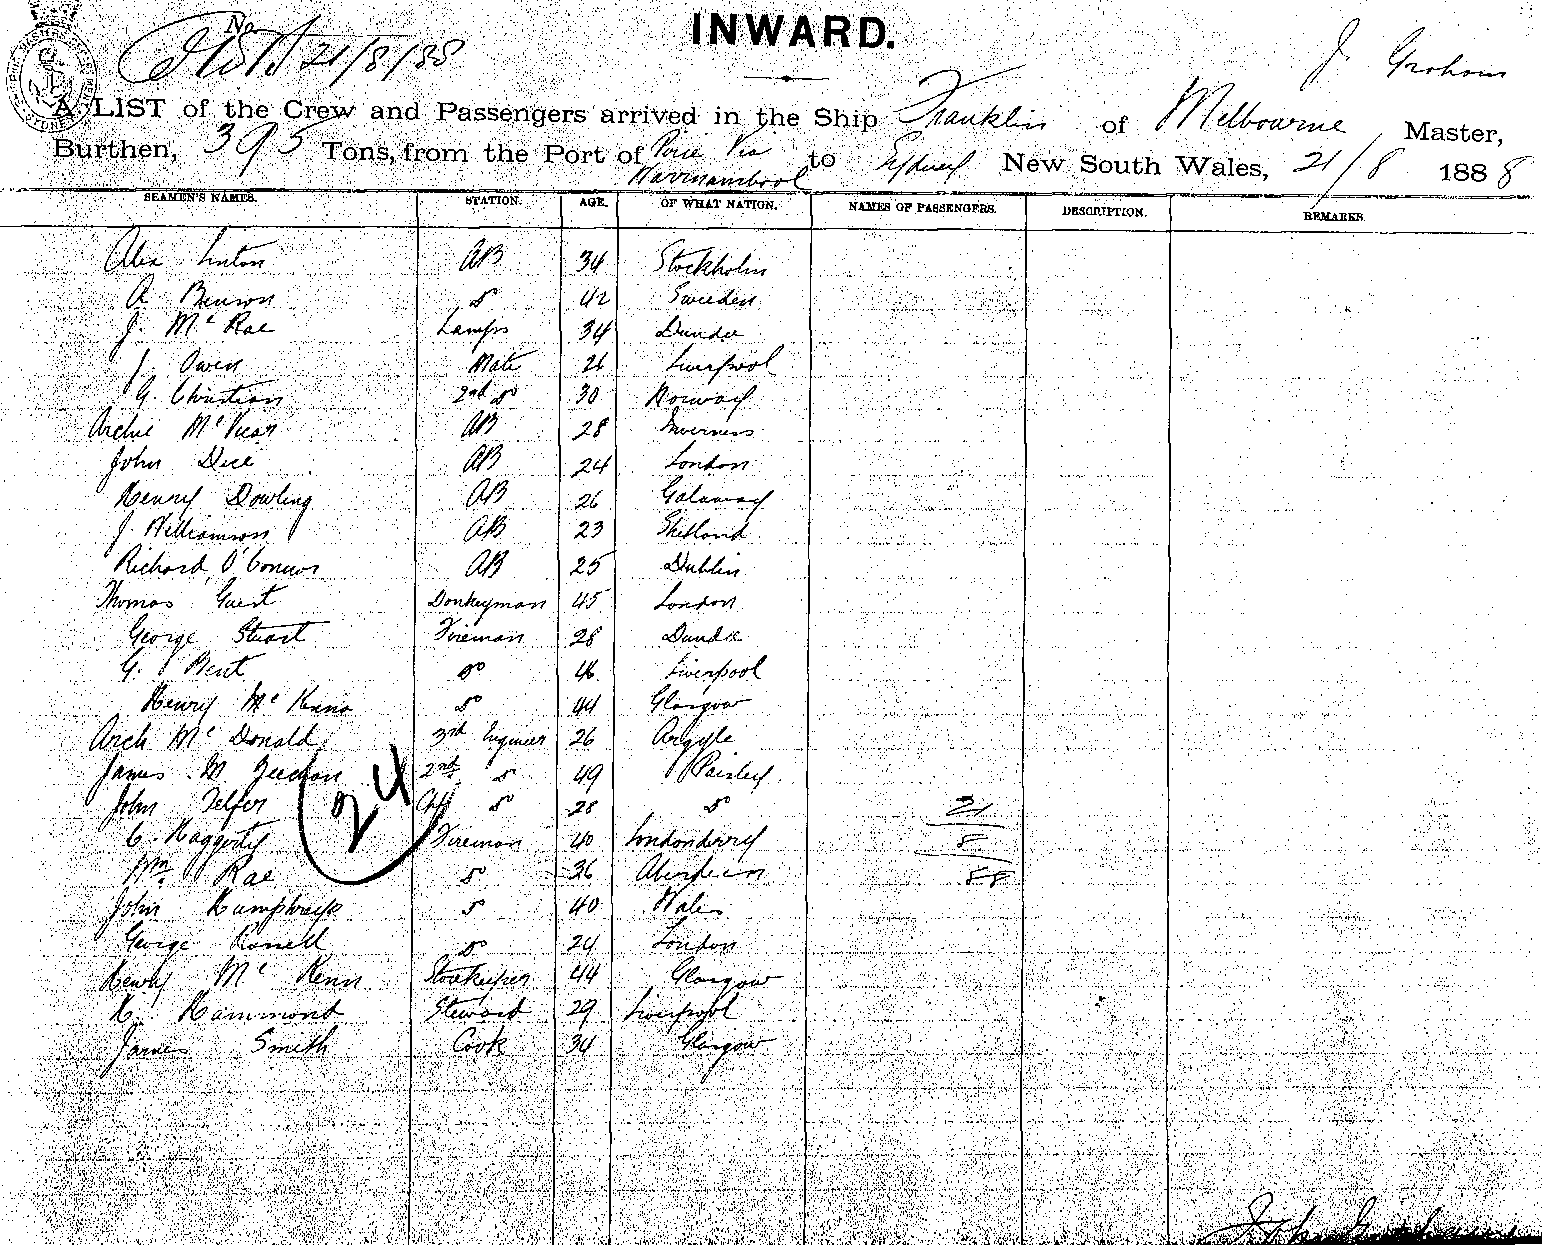 INWARD.
No.
21/8/88
J. Graham
A LIST of the Crew and Passengers arrived in the Ship Franklin of Melbourne Master,
Burthen, 395 Tons, from the Port of Pirie Via Warrnambool to Sydney New South Wales, 21/8 1888
SEAMEN'S NAMES. STATION. AGE. OF WHAT NATION. NAMES OF PASSENGERS. DESCRIPTION. REMARKS.
Alex Linton AB 34 Stockholm
A Benson Do 42 Sweden
J. McRae Lamps 34 Dundee
J Owen Mate 26 Liverpool
G. Christian 2nd Do 30 Norway
Archie McVicar AB 28 Inverness
John Dice AB 24 London
Henry Dowling AB 26 Galaway
J. Williamson AB 23 Shetland
Richard O'Connor AB 25 Dublin
Thomas Guest Donkeyman 45 London
George Stuart Fireman 28 Dundee
G. Bent Do 46 Liverpool
Henry McKenna Do 44 Glasgow
Arch McDonald 3rd Engineer 26 Argyle
James M 2nd Do 49 Paisley
John Telfer Do 28 Do 21
C. Haggerty Fireman 40 Londonderry 8
Wm. Rae Do 36 Aberdeen 88
24
John Humphreys Do 40 Wales
George Do 24 London
Henry McKenn Storekeeper 44 Glasgow
H. Hammond Steward 29 Liverpool
James Smith Cook 34 Glasgow
John Graham